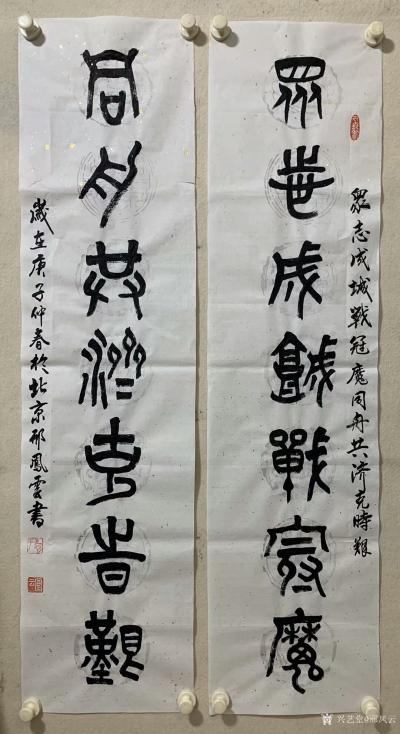 眾志成城戰冠魔
眾志成城戰冠魔同舟共济克時艱
同舟共濟克時艱
歲在庚子仲春於北京邢鳳雲書
兴艺堂@邢风云